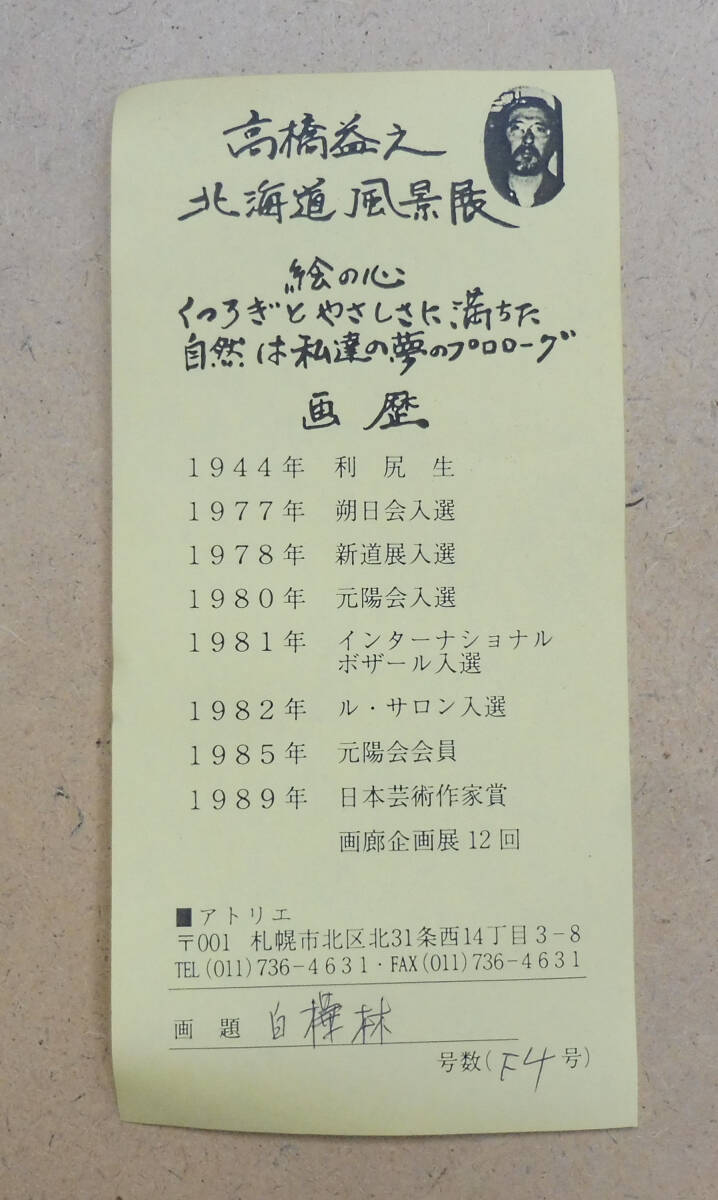 高橋益之
北海道風景展
絵の心
くつろぎとやさしさに満ちた
自然は私達の夢のプロローグ
画歴
1944年 利尻生
1977年 朔日会入選
1978年 新道展入選
1980年 元陽会入選
1981年 インターナショナル
ボザール入選
1982年 ル・サロン入選
1985年 元陽会会員
1989年 日本芸術作家賞
画廊企画展12回
■アトリエ
〒001 札幌市北区北31条西14丁目3-8
TEL(011)736-4631・FAX(011)736-4631
画題 白樺林
号数(F4号)